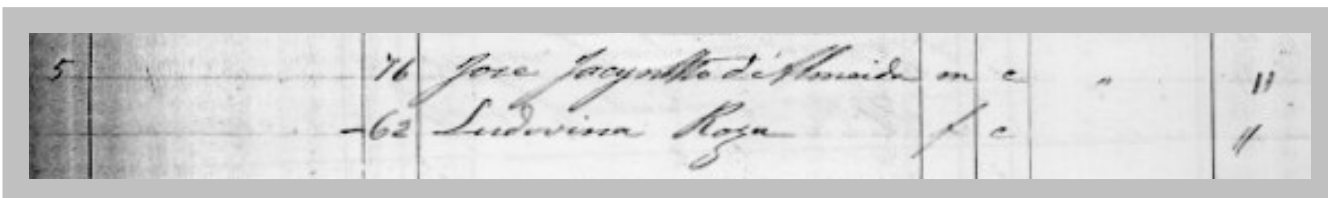 5 76 Joze Jacyntho d'Almeida m c " "
62 Ludovina Roza f c "